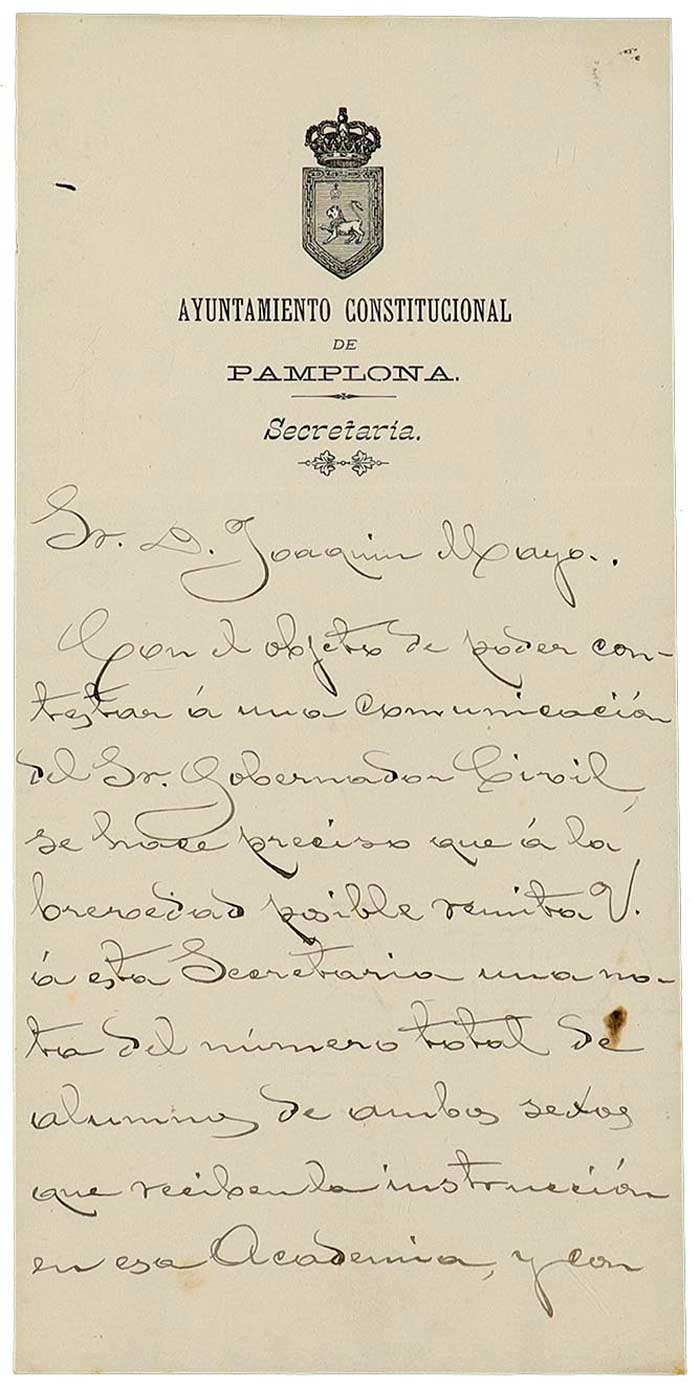 AYUNTAMIENTO CONSTITUCIONAL
DE
PAMPLONA.
Secretaría.
Sr. D. Joaquin Mayo..
Con el objeto de poder con-
testar á una comunicación
del Sr. Gobernador Civil,
se hace preciso que á la
brevedad posible remita V.
á esta Secretaria una no-
ta del número total de
alumnos de ambos sexos
que reciben la instrucción
en esa Academia, y con